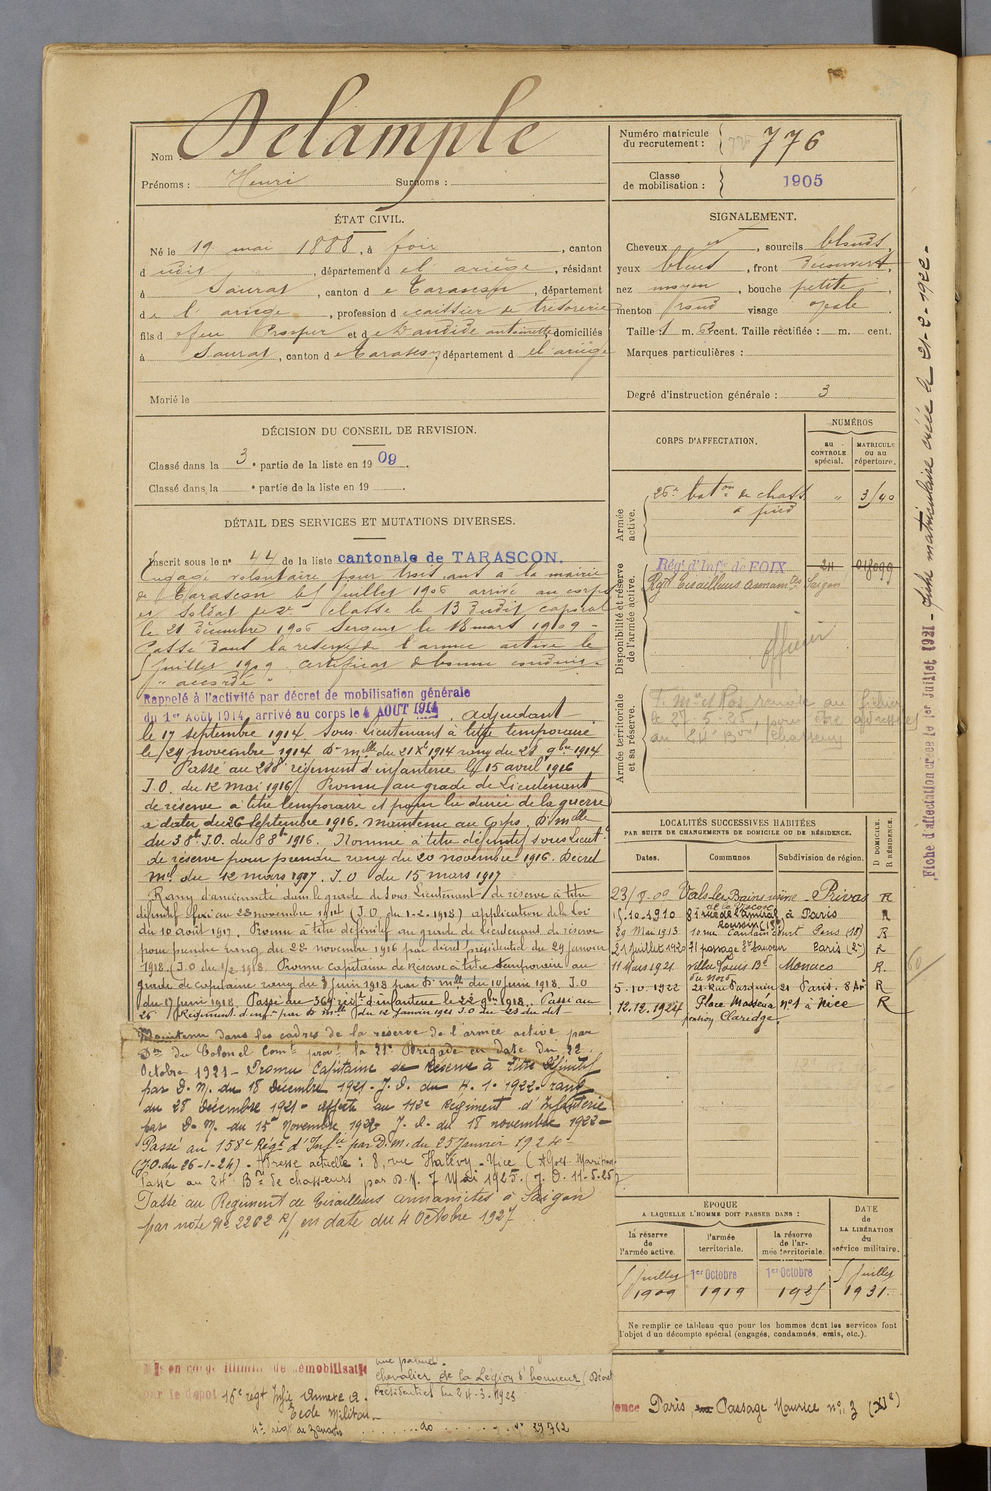 Nom : Delample
Prénoms : Henri Surnoms :
Numéro matricule du recrutement : 776
Classe de mobilisation : 1905
ÉTAT CIVIL.
Né le 19 mai 1888, à foix, canton
d udit, département d el ariège, résidant
à Saurat, canton d e Tarascon, département
de l' ariège, profession d e caissier de trésorerie
fils d e feu Prosper et d e Dandide antoinette domiciliés
à Saurat, canton d e Tarascon, département d el ariège
Marié le
SIGNALEMENT.
Cheveux , sourcils blonds.
yeux bleus, front découvert,
nez moyen, bouche petite,
menton rond visage ovale
Taille : 1 m. cent. Taille rectifiée : m. cent.
Marques particulières :
Degré d'instruction générale : 3
DÉCISION DU CONSEIL DE REVISION.
Classé dans la 3e partie de la liste en 1909.
Classé dans la e partie de la liste en 19 .
DÉTAIL DES SERVICES ET MUTATIONS DIVERSES.
Inscrit sous le no 44 de la liste cantonale de TARASCON.
Engagé volontaire pour trois ans à la mairie
de Tarascon le 5 juillet 1906 arrivé au corps
et soldat de 2e classe le 13 dudit caporal
le 21 décembre 1906 Sergent le 18 mars 1909 -
Passé dans la réserve de l'armée active le
5 juillet 1909. certificat de bonne conduite
" accordé "
Rappelé à l'activité par décret de mobilisation générale
du 1er Août 1914, arrivé au corps le 4 AOUT 1914. adjudant
le 17 septembre 1914 Sous-Lieutenant à titre temporaire
le 29 novembre 1914 Don melle du 21 Xe 1914 rang du 29 9bre 1914
Passé au 288e régiment d'infanterie le 15 avril 1916
J.O. du 12 mai 1916. Promu au grade de Lieutenant
de réserve à titre temporaire et pour la durée de la guerre
à dater du 26 Septembre 1916. Maintenu au Corps. Don melle
du 3 8bre J.O. du 8 8bre 1916. Nommé à titre définitif sous Lieutt
de réserve pour prendre rang du 20 novembre 1916. Décret
Mel du 12 mars 1917. J.O du 15 mars 1917
Rang d'ancienneté dans le grade de Sous Lieutenant de réserve à titre
définitif fixé au 28 novembre 1914 (J.O. du 1-2-1918) application de la loi
du 10 août 1917. Promu à titre définitif au grade de Lieutenant de réserve
pour prendre rang du 28 novembre 1916 par décret présidentiel du 29 Janvier
1918. (J.O du 1/2 1918. Promu capitaine de Réserve à titre temporaire au
grade de capitaine rang du 3 juin 1918 par Don melle du 10 juin 1918. J.O
du 17 juin 1918. Passé au régit d'infanterie le 22 9bre 1918. Passé au
26 Régiment d'infie par Don melle du 12 janvier 1921 J.O du 23 du dit
Maintenu dans les cadres de la réserve de l'armée active par
Don du Colonel Comt provt la 21e Brigade en date du 22
Octobre 1921 - Promu Capitaine de Réserve à Titre Définitif
par D. M. du 18 Décembre 1921 - J.O. du 4.1.1922 rang
du 28 Décembre 1921 - affecté au 112e Régiment d'Infanterie
par D. M. du 15 Novembre 1922 J.O. du 18 novembre 1922 -
Passé au 158e Régt d'Infie par D.M. du 25 Janvier 1924
(J.O. du 26-1-24) - Adresse actuelle : 8, rue Halévy - Nice (Alpes-Maritimes)
Passé au 24e Bon de chasseurs par D.M. 7 Mai 1925. (J.O. 11.5.25)
Passé au Régiment de Tirailleurs annamites à Saïgon
par note No 2262 en date du 4 Octobre 1927
CORPS D'AFFECTATION.
NUMÉROS
au CONTROLE spécial.
MATRICULE ou au répertoire.
Armée active.
26e baton de chass. à pied " 3140
Disponibilité et réserve de l'armée active.
Régt d'Infie de FOIX
Rgt Tirailleurs annamites Saïgon
officier
Armée territoriale et sa réserve.
LOCALITÉS SUCCESSIVES HABITÉES
PAR SUITE DE CHANGEMENTS DE DOMICILE OU DE RÉSIDENCE.
Dates. Communes Subdivision de région. D DOMICILE. R RÉSIDENCE.
Vals les Bains Privas R
15.10.1910 8 rue de l'amiral Roussin (15e) à Paris R
29 Mai 1913 10 rue Caulaincourt Paris (18) R
21 juillet 1920 21 passage St Sauveur Paris (2e) R
11 Mars 1921 villa Louis Bd du Nord Monaco R.
5.10.1922 21 Rue Pasquier Paris. 8 Arr R
12.12.1924 Place Masséna no 1 à Nice R
pension Claridge
ÉPOQUE
A LAQUELLE L'HOMME DOIT PASSER DANS :
la réserve de l'armée active.
l'armée territoriale.
la réserve de l'armée territoriale.
DATE de LA LIBÉRATION du service militaire.
5 juillet 1909
1er Octobre 1919
1er Octobre 1925
5 juillet 1931
Ne remplir ce tableau que pour les hommes dont les services font
l'objet d'un décompte spécial (engagés, condamnés, omis, etc.).
Paris, Passage Maurice no 3 (XIe)
Mis en congé illimité de démobilisation
par le dépôt 16e régt Infie Annexe A.
Ecole Militaire
Chevalier de la Légion d'honneur (Décret
Présidentiel du 24-3-1923
Fiche d'affectation créée le 1er Juillet 1921 - fiche matriculaire créée le 21-2-1922 -